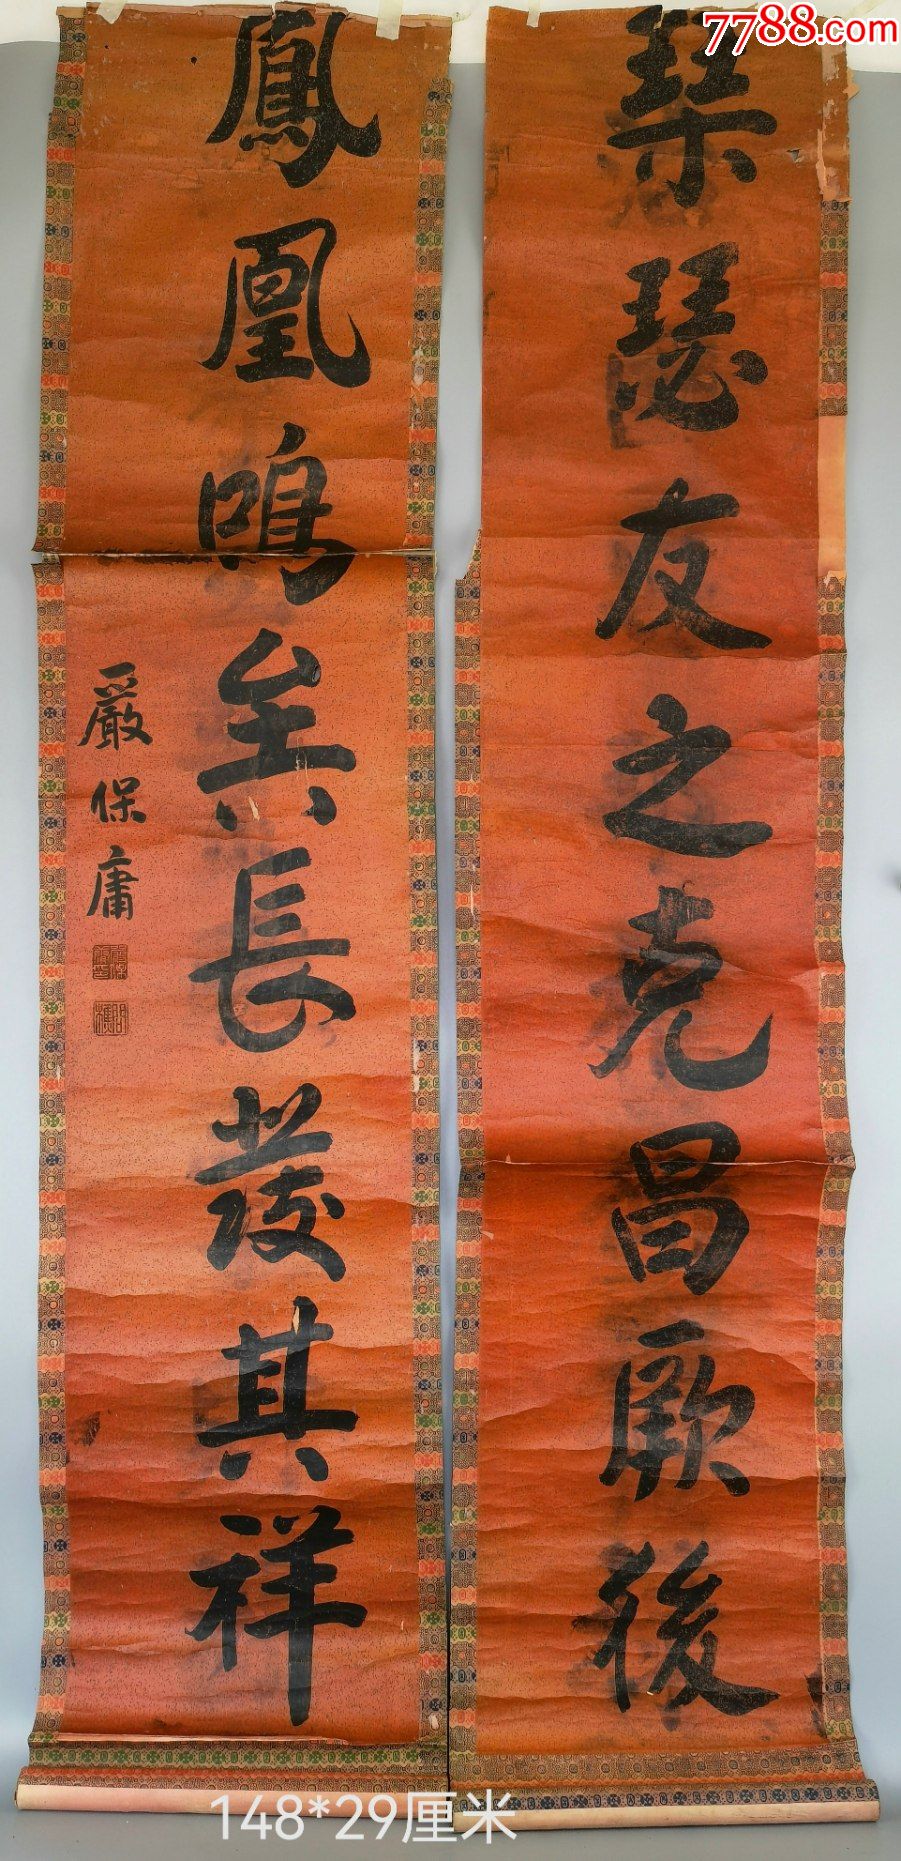 7788.com
琴瑟友之克昌厥後
鳳凰鳴矣長發其祥
嚴保庸
148*29厘米